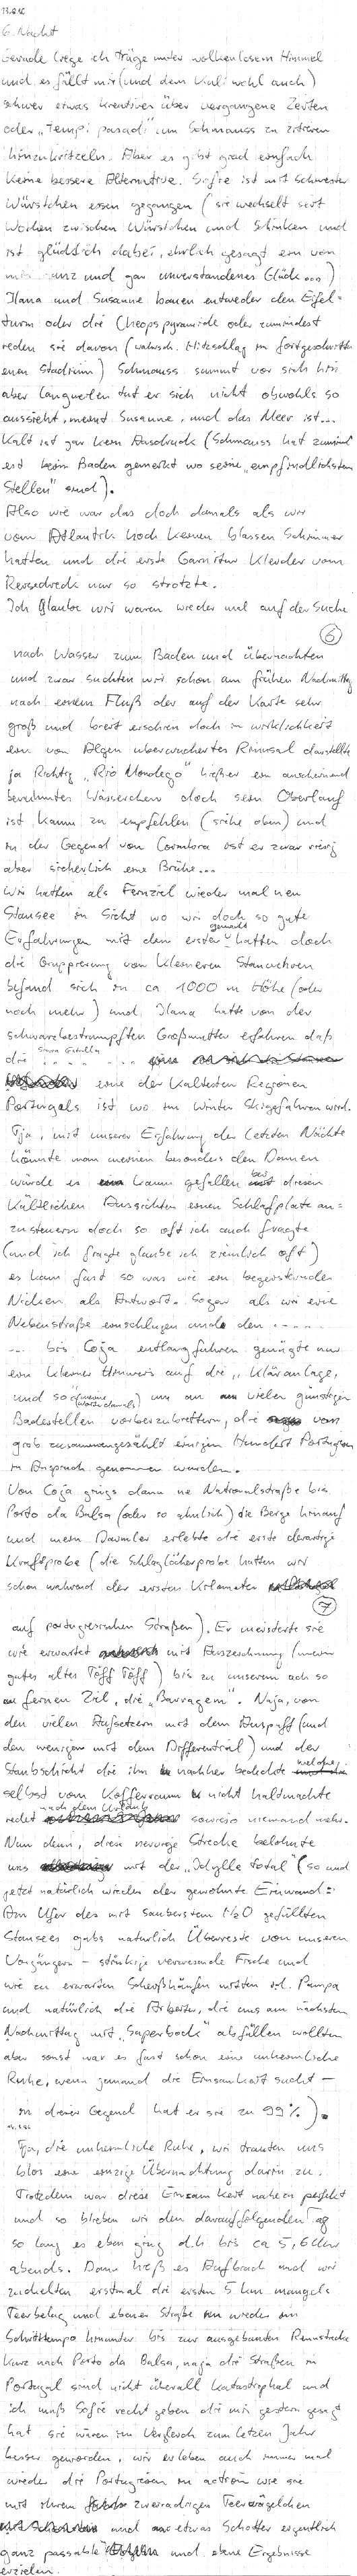 13.8.86
6. Nacht
Gerade liege ich träge unter wolkenlosem Himmel
und es fällt mir (und dem Kuli wohl auch)
schwer etwas kreatives über vergangene Zeiten
oder „Tempi passati" um Schmauss zu zitieren
hinzukritzeln. Aber es gibt grad einfach
keine bessere Alternative. Sofie ist mit Schwester
Würstchen essen gegangen (sie wechselt seit
Wochen zwischen Würstchen und Schinken und
ist glücklich dabei, ehrlich gesagt ein von
mir ganz und gar unverstandenes Glück...)
Ilana und Susanne bauen entweder den Eifel-
turm oder die Cheopspyramide oder zumindest
reden sie davon (wahrsch. Hitzschlag im fortgeschritt
enen Stadium) Schmauss summt vor sich hin
aber langweilen tut er sich nicht obwohls so
aussieht, meint Susanne, und das Meer ist...
Kalt ist gar kein Ausdruck (Schmauss hat zumind
est beim Baden gemerkt wo seine „empfindlichsten
Stellen" sind).
Also wie war das doch damals als wir
vom Atlantik noch keinen blassen Schimmer
hatten und die erste Garnitur Kleider vom
Reisedreck nur so strotzte.
Ich glaube wir waren wieder mal auf der Suche
6
nach Wasser zum Baden und übernachten
und zwar suchten wir schon am frühen Nachmittag
nach einem Fluß der auf der Karte sehr
groß und breit erschien doch in wirklichkeit
ein von Algen überwuchertes Rinnsal darstellte
ja Richtig „Rio Mondego" hießer ein anscheinend
berühmtes Wässerchen doch sein Oberlauf
ist kaum zu empfehlen (siehe oben) und
in der Gegend von Coimbra ist er zwar riesig
aber sicherlich eine Brühe...
Wir hatten als Fernziel wieder mal nen
Stausee in Sicht wo wir doch so gute
Erfahrungen mit dem ersten gemacht hatten doch
die Gruppierung von kleineren Stauseen
befand sich in ca 1000 m Höhe (oder
noch mehr) und Ilana hatte von der
schwarzbestrumpften Großmutter erfahren daß
die Serra Estrella
eine der kältesten Regionen
Portugals ist, wo im Winter Skigefahren wird.
Tja, mit unserer Erfahrung der letzten Nächte
könnte man meinen besonders den Damen
würde es kaum gefallen bei diesen
kältlichen Aussichten einen Schlafplatz an=
zusteuern doch so oft ich auch fragte
(und ich fragte glaube ich ziemlich oft)
es kam fast so was wie ein begeisterndes
Nicken als Antwort. Sogar als wir eine
Nebenstraße einschlugen und den ......
... bis Coja entlangfuhren genügte nur
ein kleiner Hinweis auf die „Kläranlage,
und so" um an vielen günstigen
Badestellen vorbeizubrettern, die von
grob zusammengezählt einigen Hundert Portugiesen
in Anspruch genommen wurden.
Von Coja gings dann ne Nationalstraße bis
Porto da Balsa (oder so ähnlich) die Berge hinauf
und mein Daimler erlebte die erste derartige
Kraftprobe (die Schlaglöcherprobe hatten wir
schon während der ersten Kilometer
7
auf portugiesischen Straßen). Er meisterte sie
wie erwartet mit Auszeichnung (mein
gutes altes Töff Töff) bis zu unserem ach so
fernen Ziel, die „Barragem". Naja, von
den vielen Aufsetzern mit dem Auspuff (und
den wenigen mit dem Differential) und der
Staubschicht die ihn nachher bedeckte welche
selbst vom Kofferraum nicht haltmachte
redet nach dem Urlaub sowieso niemand mehr.
Nun denn, diese nervige Strecke belohnte
uns mit der „Idylle total" (so und
jetzt natürlich wieder der gewohnte Einwand:
Am Ufer des mit sauberstem H2O gefüllten
Stausees gabs natürlich Überreste von unseren
Vorgängern – stinkige verwesende Fische und
wie zu erwarten Scheißhäufen mitten i.d. Pampa
und natürlich die Arbeiter, die uns am nächsten
Nachmittag mit „Superbock" abfüllen wollten
aber sonst war es fast schon eine unheimliche
Ruhe, wenn jemand die Einsamkeit sucht –
in dieser Gegend hat er sie zu 99%).
Tja, die unheimliche Ruhe, wir trauten uns
blos eine einzige Übernachtung darin zu.
Trotzdem war diese Einsamkeit nahezu perfekt
und so blieben wir den darauffolgenden Tag
so lang es eben ging d.h bis ca 5, 6 Uhr
abends. Dann hieß es Aufbruch und wir
zuckelten erstmal die ersten 5 km mangels
Teerbelag und ebener Straße wieder im
Schrittempo hinunter bis zur ausgebauten Rennstrecke
kurz nach Porto da Balsa, naja die Straßen in
Portugal sind nicht überall katastrophal und
ich muß Sofie recht geben die mir gestern gesagt
hat sie wären im Vergleich zum letzen Jahr
besser geworden, wir erleben auch immer mal
wieder die Portugiesen in action wie sie
mit ihrem zweirädrigen Teerwägelchen
und etwas Schotter eigentlich
ganz passable und ebene Ergebnisse
erzielen.